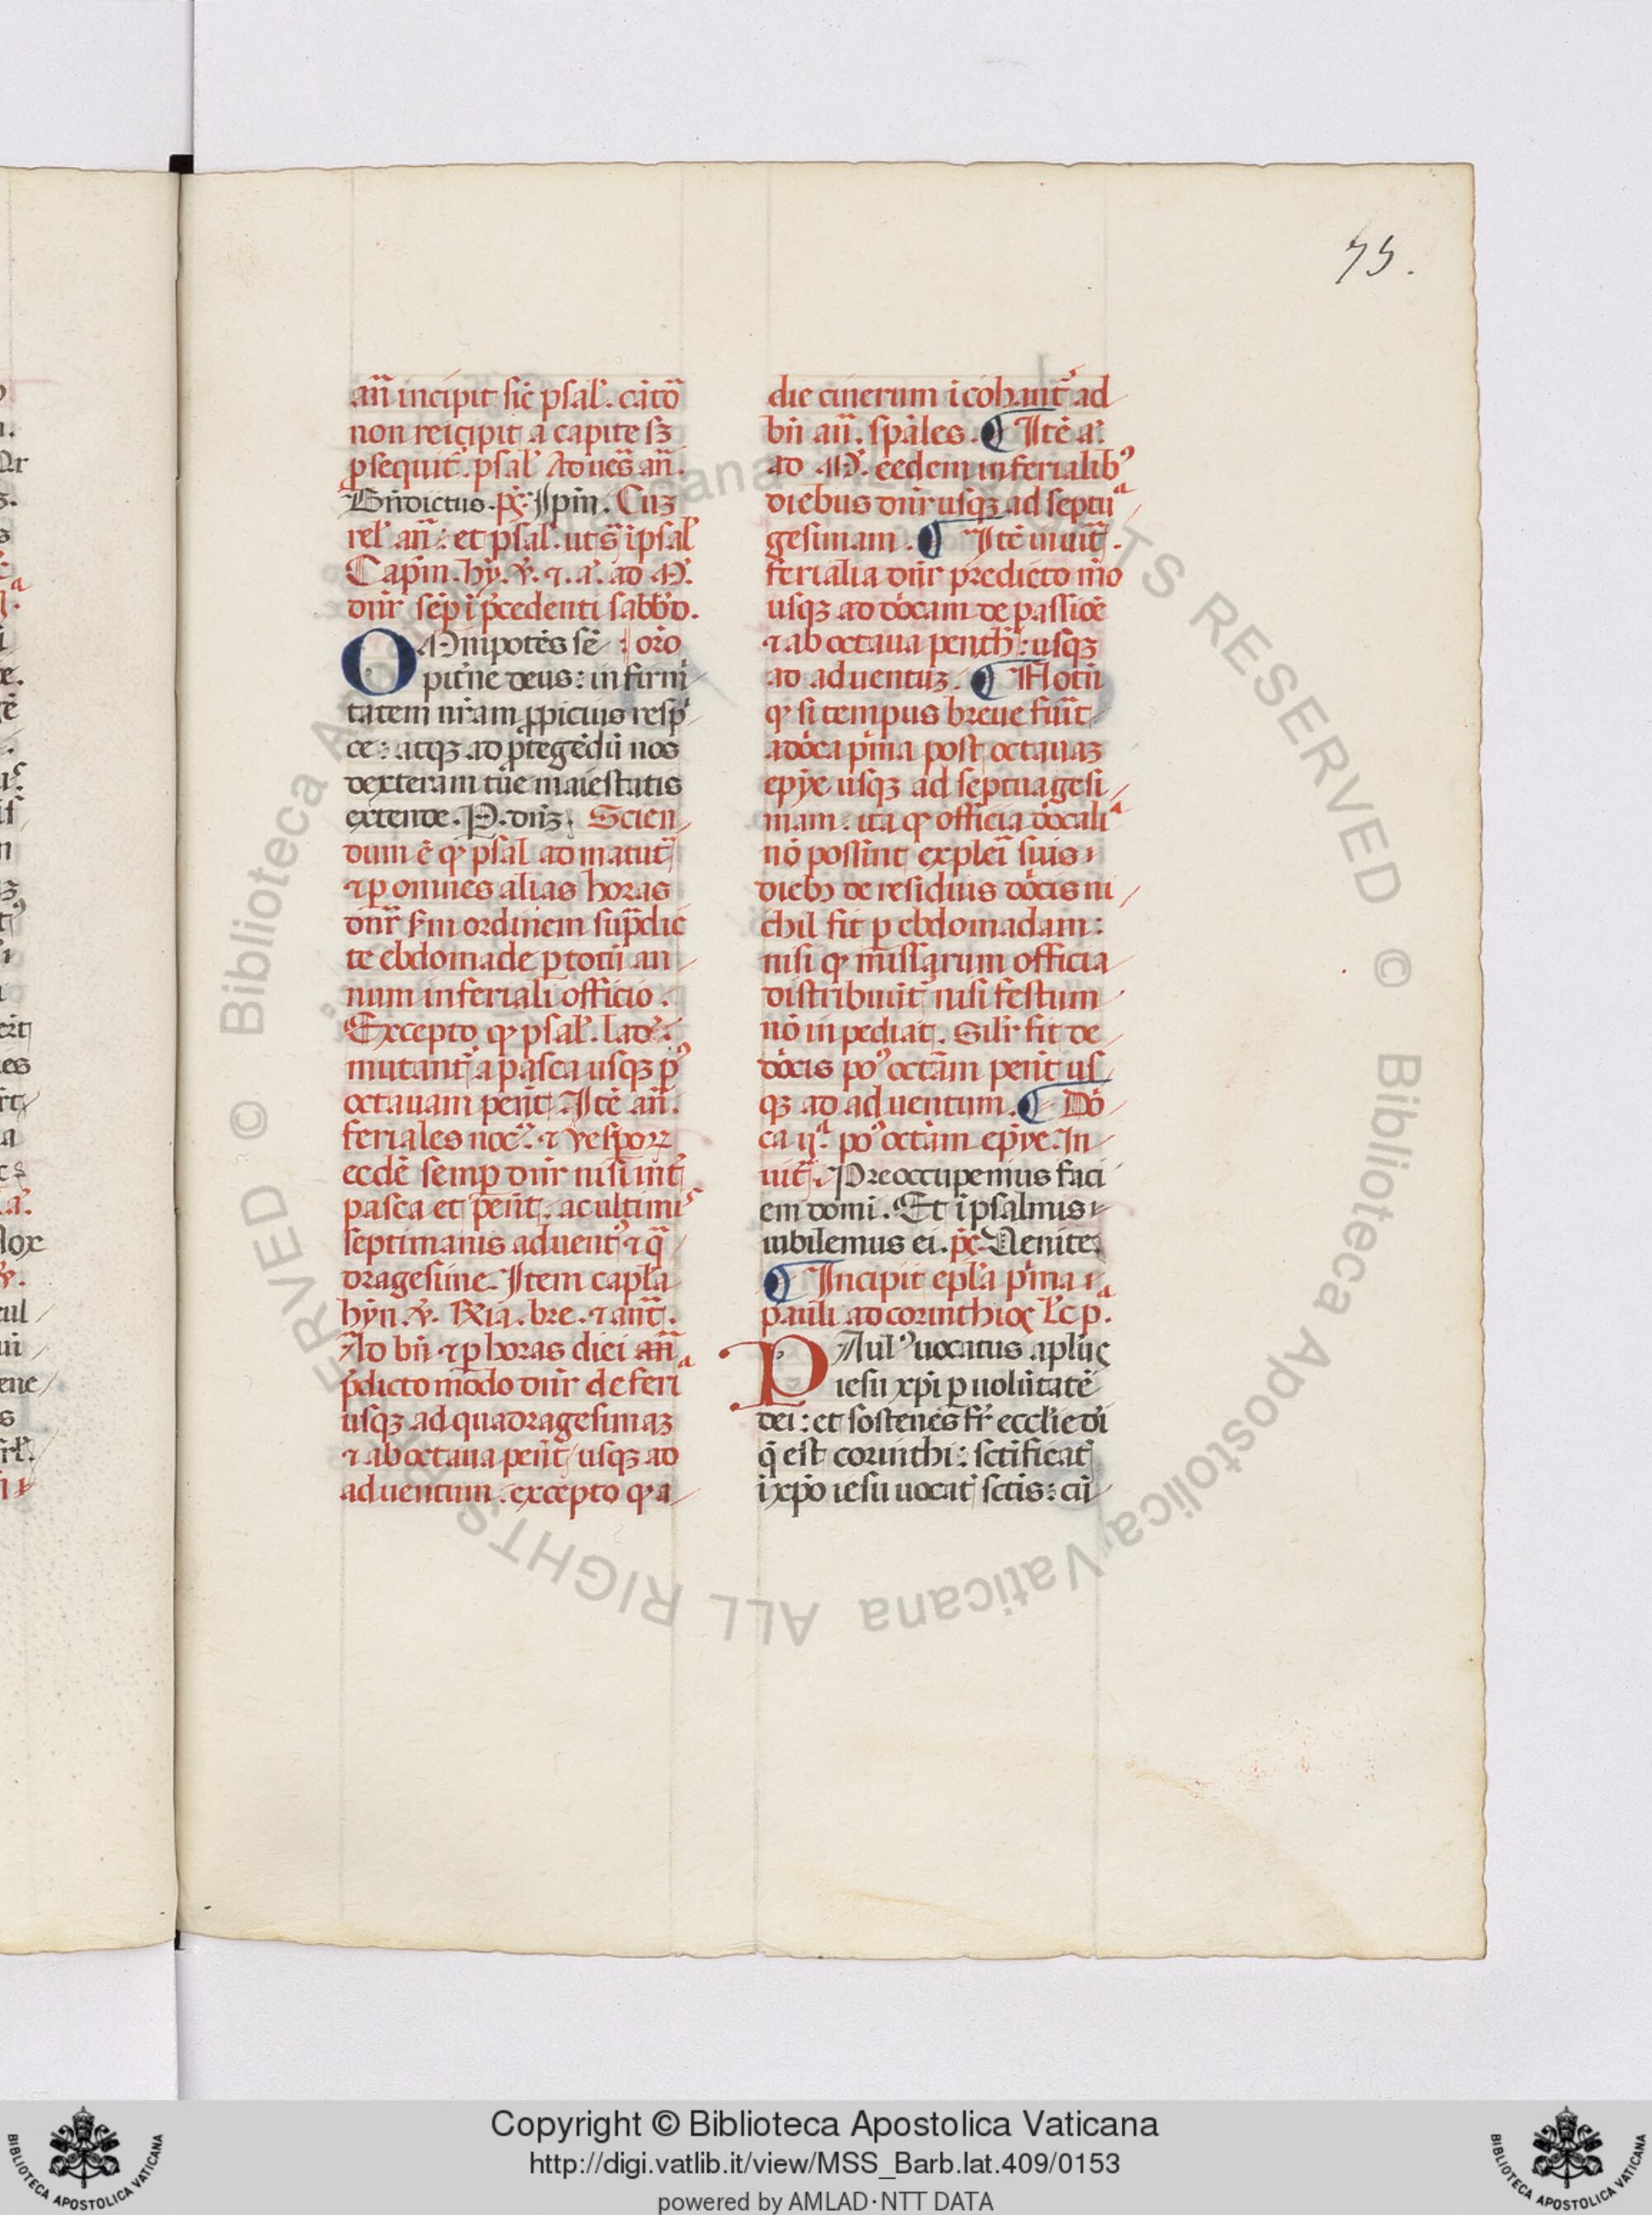 75.
añ incipit sic̄ psal̓. cāto
non reicipit a capite sꝫ
ꝓsequit̓. psal̓ Ad ues̄ añ.
Bñdictus. ps̄. Ipm̄. Cuꝫ
rel̓ añ. et psal. ut s̄ i psal̓
Capm̄. hȳ. ℣. ⁊. a. ad M̓.
dnr̄ sēp i p̄cedenti sabb̓o.
OMnipotēs sē oro
pit̓ne deus: infirmi
tatem nr̄am ꝓpicius resp
ce: atqꝫ ad ꝓtegēdū nos
dexteram tue maiestatis
extende. P. dn̄ꝫ. Scien
dum ē ꝙ psal̓ ad matut̄
⁊ p omnes alias horas
dnr̄ ẜm ordinem sup̄dic
te ebdomade p totū an
num in feriali officio.
Excepto ꝙ psal̓. lad̓.
mutant̓ a pasca usqꝫ p̓
octauam pent̄. Itē añ.
feriales noc̓. ⁊ vesporꝝ
eedē semp dnr̄ nisi int̓
pasca et pent̄. ac ultimis
septimanis aduent̓ ⁊ q̄
dragesime. Item capl̓a
hȳn. ℣. R̓ia. bre. ⁊ ant̄.
Ad bn̄ ⁊ p horas diei añ
p̄dicto modo dnr̄ de feria
usqꝫ ad quadragesimaꝫ
⁊ ab octaua pent̄ usqꝫ ad
aduentum. excepto ꝙ a
die cinerum icohant̓ ad
bn̄ añ. sp̄ales. ¶ Itē a.
ad M̓. eedem in ferialib̓
diebus dnr̄ usqꝫ ad septua
gesimam. ¶ Itē inuit̄.
ferialia dnr̄ predicto mō
usqꝫ ad dōcam de passiōe
⁊ ab octaua penth̄. usqꝫ
ad aduentuꝫ. ¶ Notū
ꝙ si tempus breue fu̓it
a dōca p̓ma post octauaꝫ
epyē usqꝫ ad septuagesi
mam. ita ꝙ officia dōcalia
nō possint expleri suis
dieb̓ de residuis dōcis ni
chil fit p ebdomadam:
nisi ꝙ missarum officia
distribuūt̓ nisi festum
nō inpediat. Silr̄ fit de
dōcis po̓ octām pent̄ us
qꝫ ad aduentum. ¶ Dō
ca ijᵃ. po̓ octām epȳe. In
uit̄. Preoccupemus faci
em domi. Et i psalmis
iubilemus ei. ps̄. Uenite.
¶ Incipit epl̓a p̓ma
pauli ad corinthios Lc̄ p.ᵃ
PAul̓ uocatus apl̓us
iesu xp̄i p uolūtatē
dei: et sostenes fr̄ eccl̓ie dī
q̄ est corinthi: sctificatis
i xp̄o iesu uocatis sctis: cū
Copyright © Biblioteca Apostolica Vaticana
http://digi.vatlib.it/view/MSS_Barb.lat.409/0153
powered by AMLAD·NTT DATA